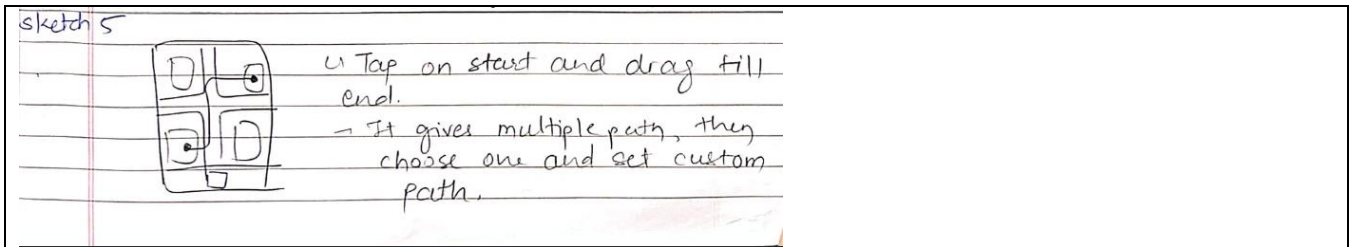 sketch 5
↳ Tap on start and drag till
end.
→ It gives multiple path, then
choose one and set custom
path.